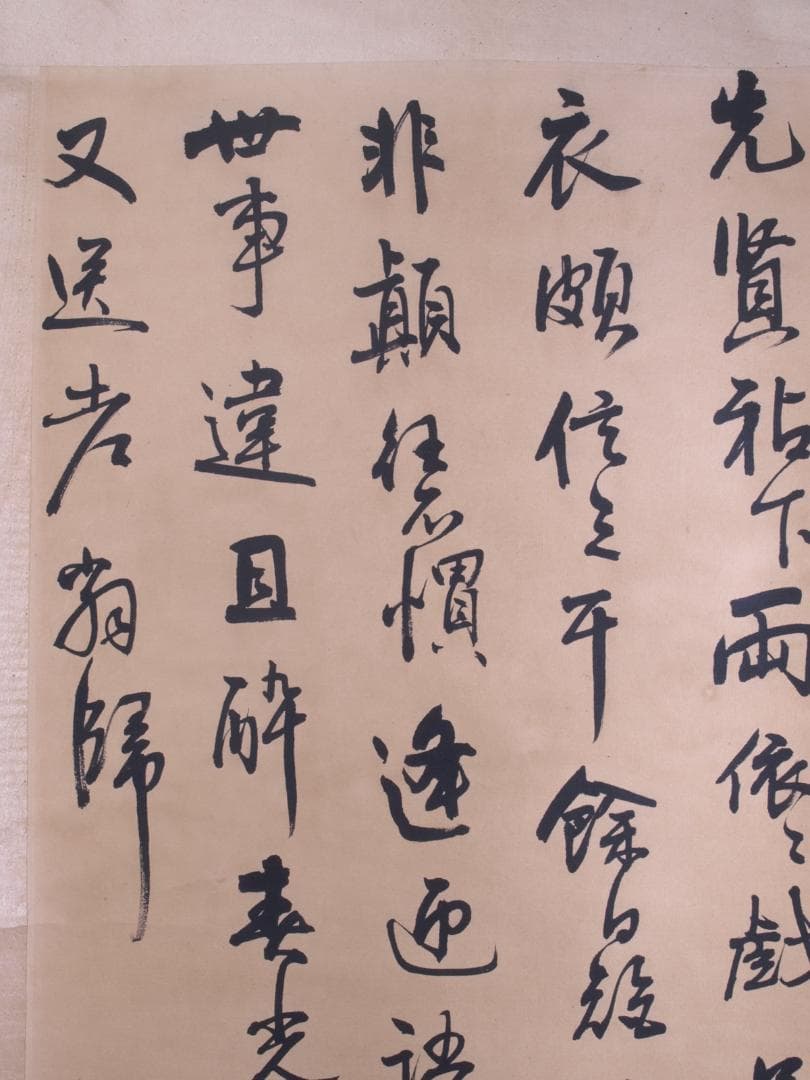 先賢下兩依〻戲
衣頗信三千餘日
非顛狂不慣逢迎
世事違且醉春光
又送老翁歸